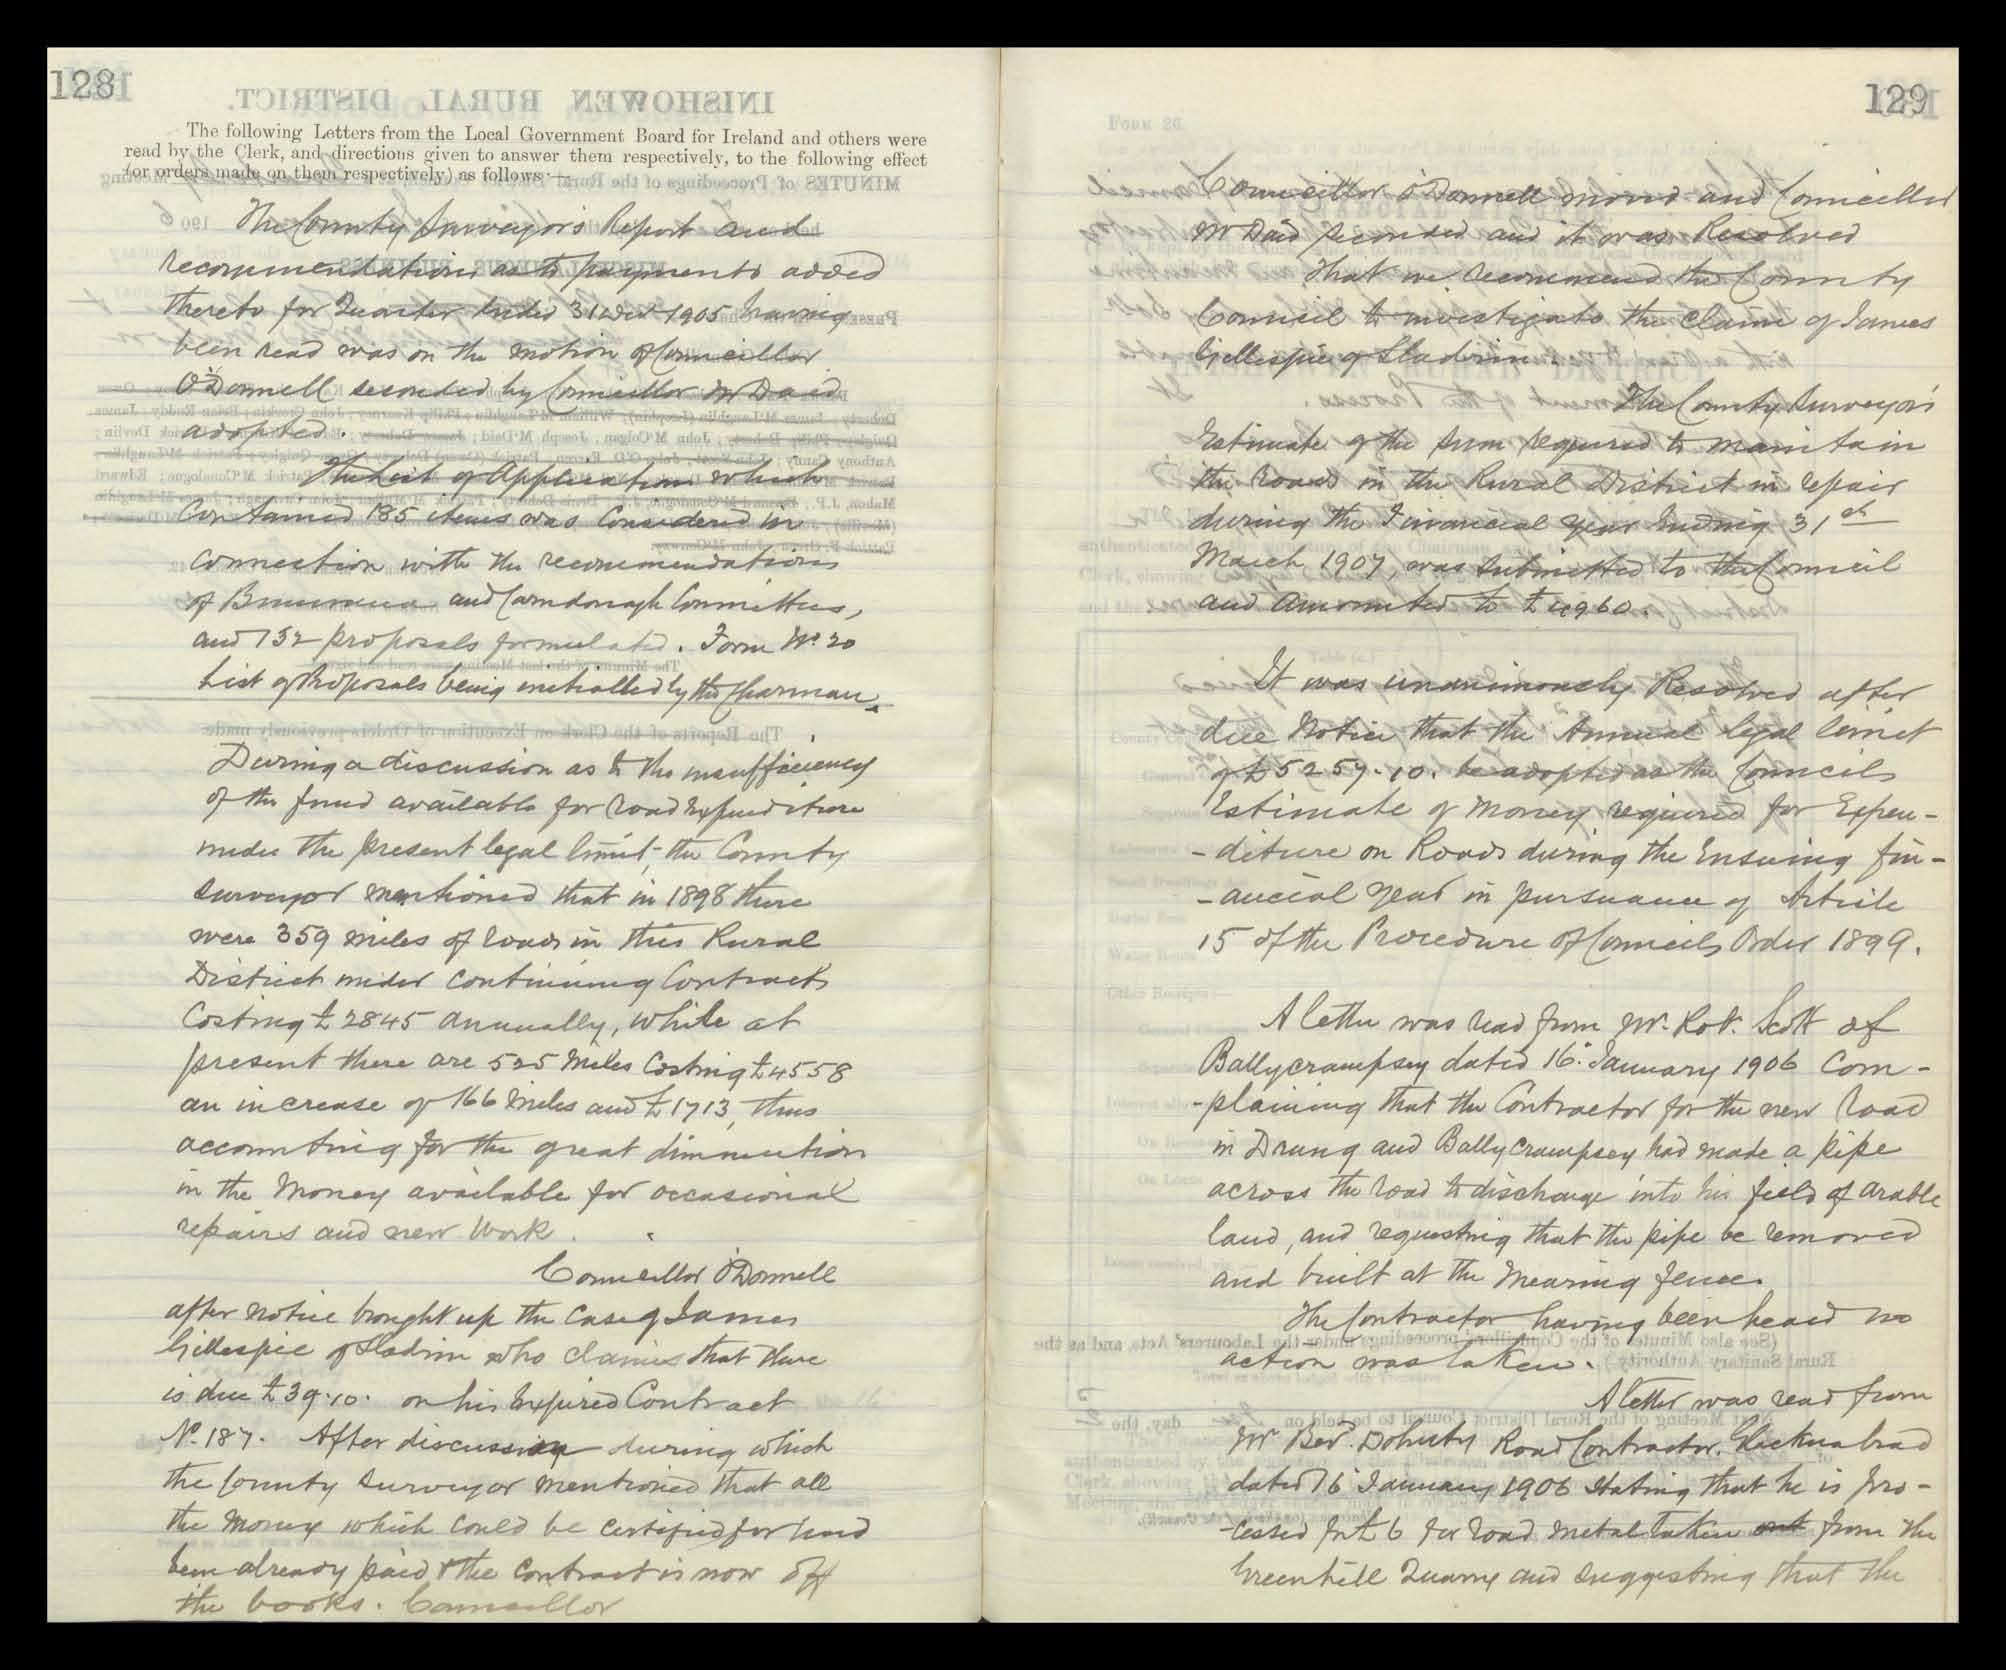 128
The following Letters from the Local Government Board for Ireland and others were
read by the Clerk, and directions given to answer them respectively, to the following effect
(or orders made on them respectively) as follows:—
The County Surveyor's Report and
recommendations as to payments added
thereto for Quarter Ended 31 Decr 1905 having
been read was on the motion of Councillor
O'Donnell seconded by Councillor McDaid
adopted.
The List of Applications which
Contained 185 items was Considered in
connection with the recommendations
of Buncrana and Carndonagh Committees,
and 132 proposals formulated. Form No. 20
List of Proposals being initialled by the Chairman.
During a discussion as to the insufficiency
of the fund available for road Expenditure
under the present legal limit, the County
Surveyor mentioned that in 1898 there
were 359 miles of roads in this Rural
District under Continuing Contracts
Costing £2845 annually, while at
present there are 525 Miles Costing £4558
an increase of 166 Miles and £1713, thus
accounting for the great diminution
in the Money available for occasional
repairs and new Work.
Councillor O'Donnell
after notice brought up the case of James
Gillespie of Sladrin who claims that there
is due £39.10. on his Expired Contract
No. 187. After discussion during which
the County Surveyor mentioned that all
the Money which could be certified for had
been already paid & the Contract is now off
the books. Councillor
129
Councillor O'Donnell moved and Councillor
McDaid seconded and it was Resolved
That we recommend the County
Council to investigate the claim of James
Gillespie of Sladrin.
The County Surveyor's
Estimate of the sum required to maintain
the roads in the Rural District in repair
during the Financial Year Ending 31st
March 1907, was submitted to the Council
and amounted to £4960.
It was unanimously Resolved after
due Notice that the Annual legal limit
of £5257.10. be adopted as the Councils
Estimate of Money required for Expen-
-diture on Roads during the Ensuing fin-
-ancial Year in pursuance of Article
15 of the Procedure of Councils Order 1899.
A letter was read from Mr. Robt. Scott of
Ballycrampsey dated 16 January 1906 Com-
-plaining that the Contractor for the new Road
in Drung and Ballycrampsey had made a pipe
across the road to discharge into his field of arable
land, and requesting that the pipe be removed
and built at the Mearing fence.
The Contractor having been heard no
action was taken.
A letter was read from
Mr Bed. Doherty Road Contractor, Glacknabrad
dated 16 January 1906 Stating that he is pro-
-cessed for £6 for road metal taken from the
Greenhill Quarry and suggesting that the